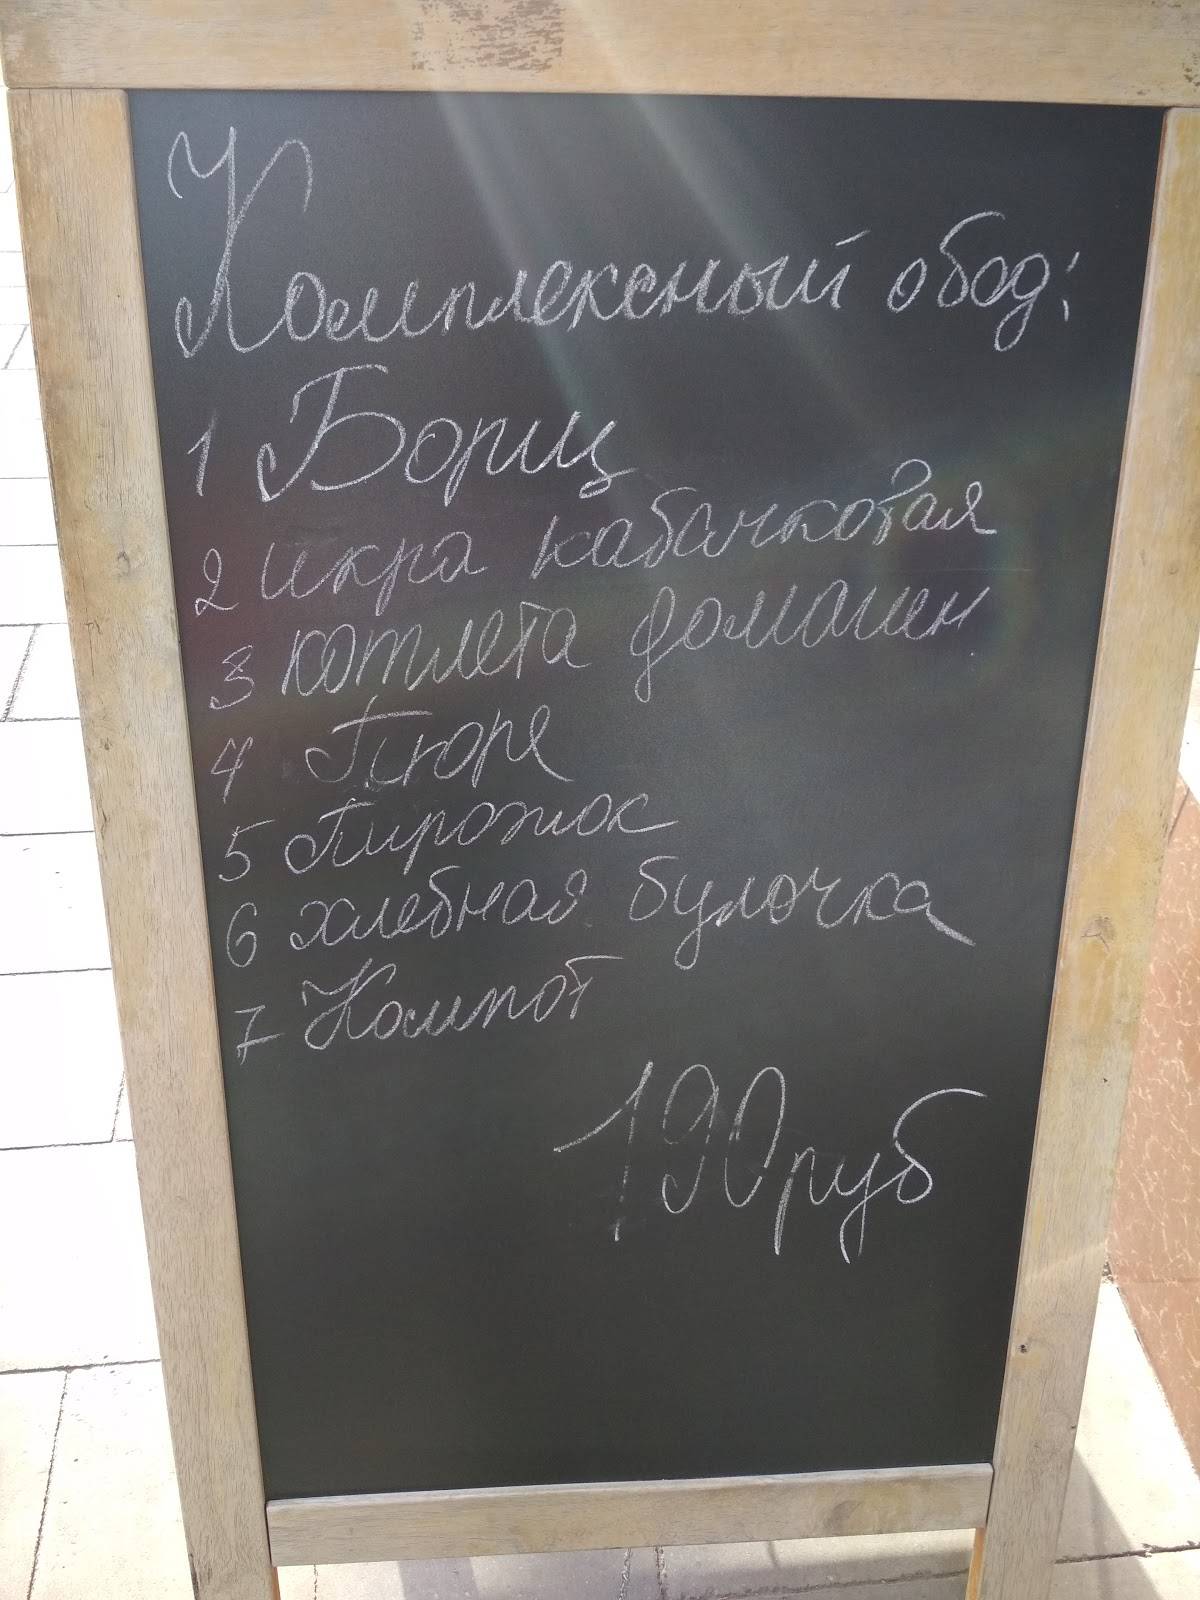 Комплексный обод:
1 Борщ
2 икра кабачковая
3 котлета домашн
4 Пюре
5 Пирожок
6 хлебная булочка
7 Компот
190руб